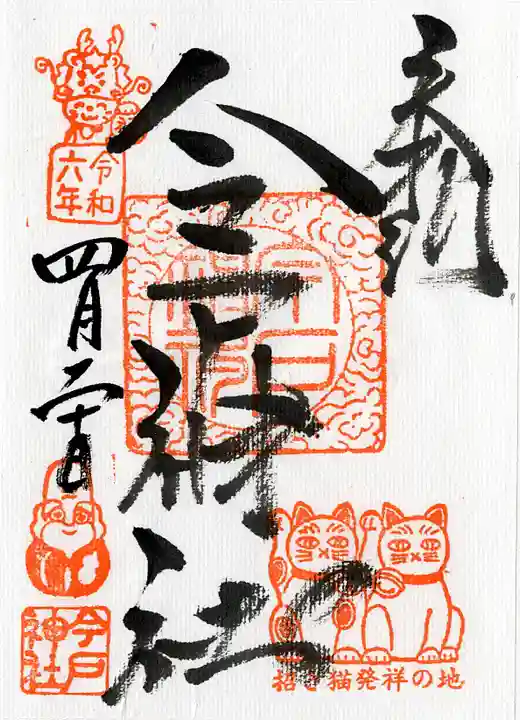 奉拝
今戸神社
令和
六年
四月二十日
今戸
神社
今戸
神社
招き猫発祥の地